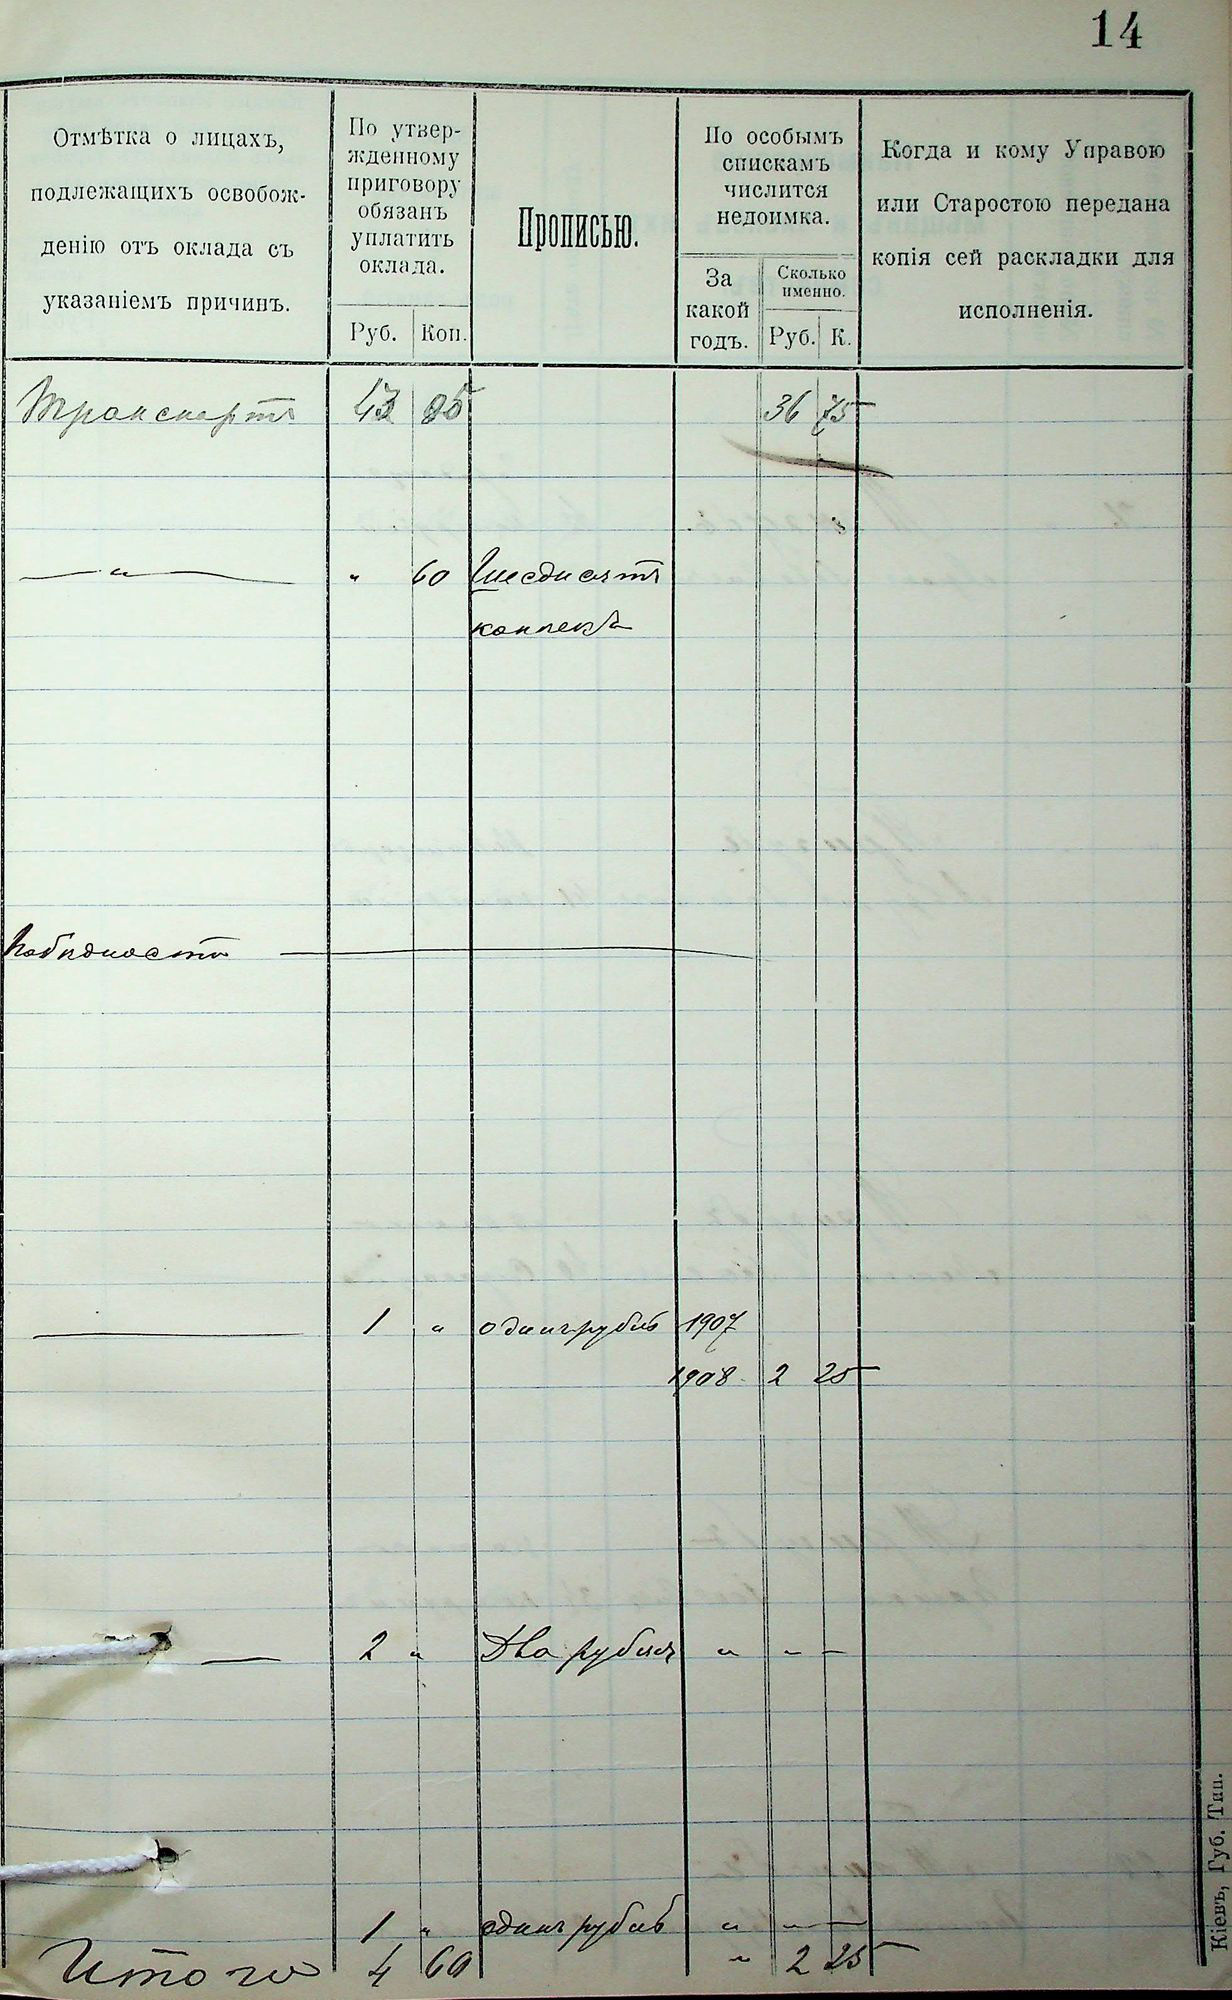 14
Отмѣтка о лицахъ,
подлежащихъ освобож-
денію отъ оклада съ
указаніемъ причинъ.
По утвер-
жденному
приговору
обязанъ
уплатить
оклада.
Руб. Коп.
Прописью.
По особымъ
спискамъ
числится
недоимка.
За
какой
годъ.
Сколько
именно.
Руб. К.
Когда и кому Управою
или Старостою передана
копія сей раскладки для
исполненія.
Транспортъ 43 85 36 75
— " — " 60 Шесдисятъ
копнекъ
По бѣдности —
— 1 " одинъ рубль 1907
1908 2 25
— 2 " Два рубля " - -
1 " одинъ рубль " - -
Итого 4 60 " 2 25
Кіевъ, Губ. Тип.